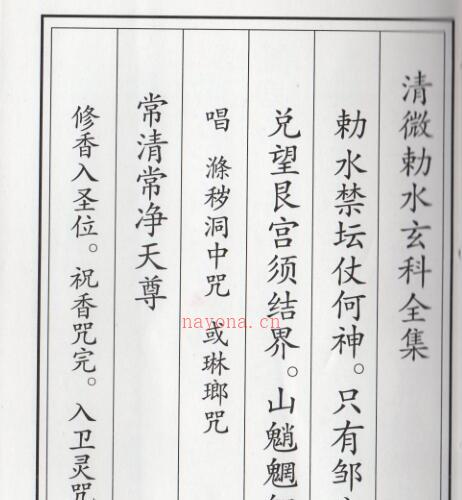 清微勅水玄科全集
勅水禁坛仗何神。只有邹
兑望艮宫须结界。山魈魍
唱 滌秽洞中咒 或琳瑯咒
常清常净天尊
修香入圣位。祝香咒完。入卫灵咒
nayona.cn